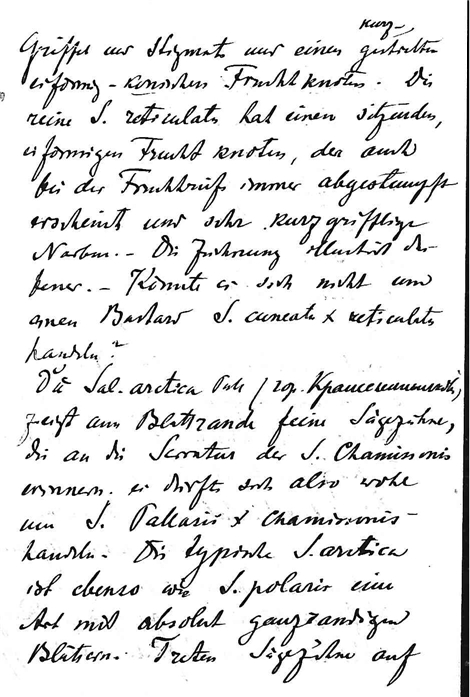 kurz-
Griffel und Stigmata und einen gestielten
eiförmig-konischen Fruchtknoten. Die
reine S. reticulata hat einen sitzenden,
eiförmigen Fruchtknoten, der auch
bei der Fruchtreife immer abgestumpft
erscheint und sehr kurzgrifflige
Narben. - Die Zeichnung illustriert
- Könnte es sich nicht um
einen Bastard S. cuneata x reticulata
handeln?
Die Sal. arctica Pall. (гор.
zeigt am Blattrande feine Sägezähne,
die an die Serratur der S. Chamissonis
erinnern. es dürfte sich also wohl
um S. Pallasii x chamissonis
handeln. Die typische S. arctica
ist ebenso wie S. polaris eine
Art mit absolut ganzrandigen
Blättern. Treten Sägezähne auf